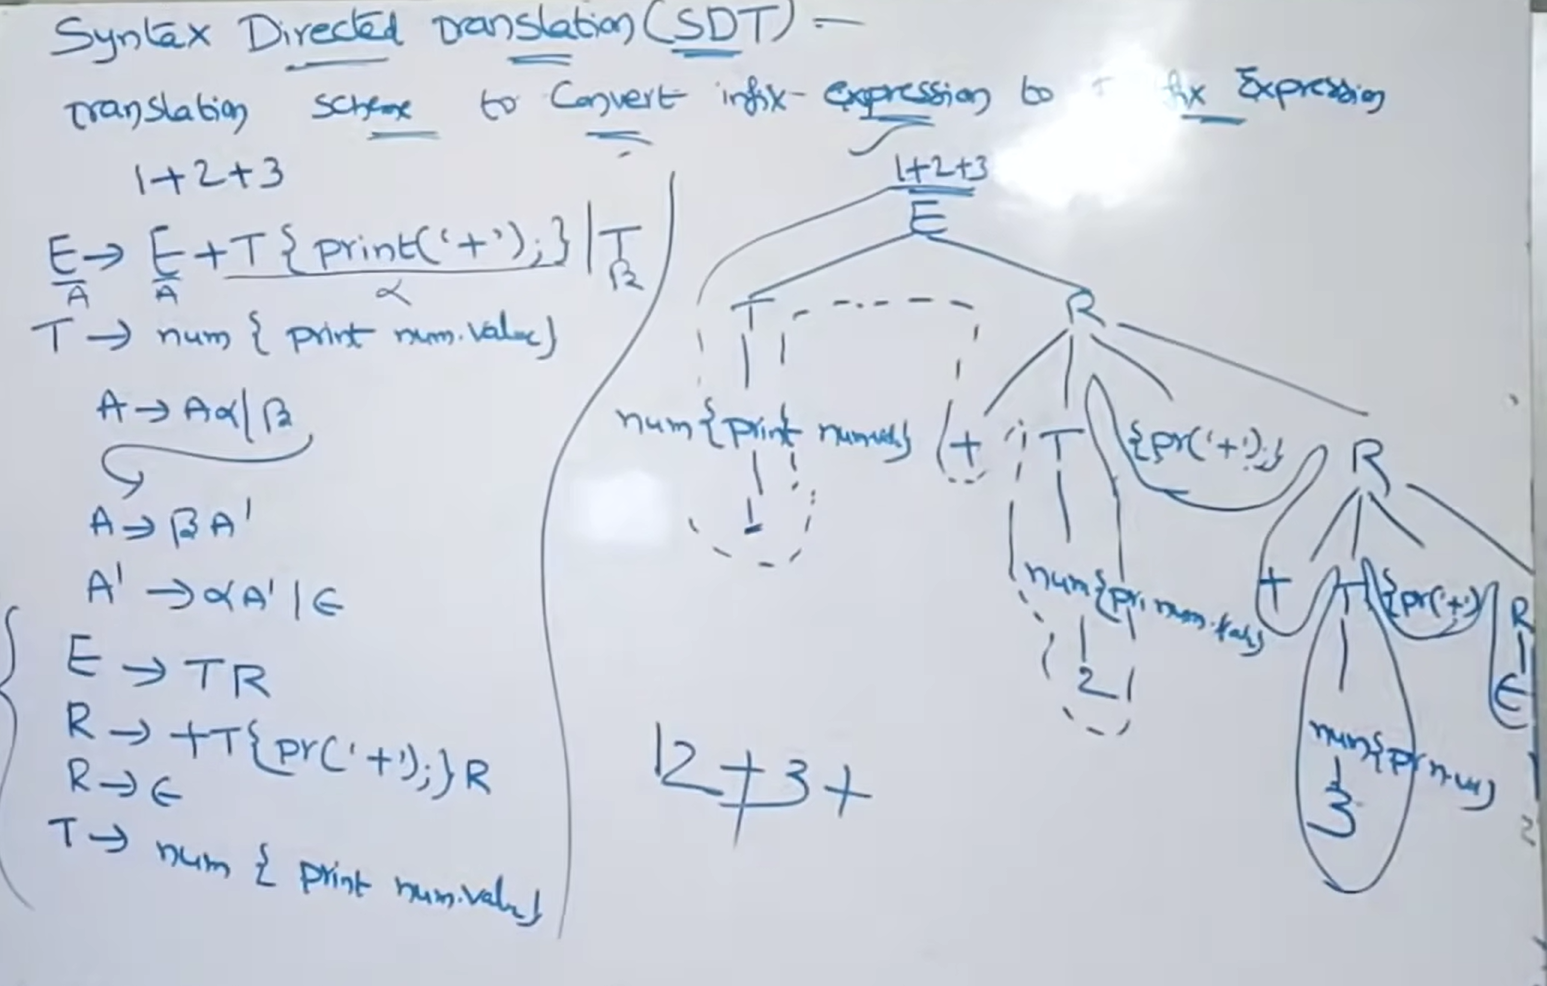 Syntax Directed Translation (SDT) :-
Translation scheme to Convert infix- expression to fix Expression
1+2+3
E → E + T { print('+'); } | T
A A α β
T → num { print num.value }
A → Aα|β
A → βA'
A' → αA' | ∈
E → TR
R → +T{pr('+');}R
R → ∈
T → num { print num.value }
1+2+3
E
T R
num { print num.val } + T {pr('+');} R
1
num { pr num.val } + T {pr('+')} R
2 ∈
num { pr
3
12+3+